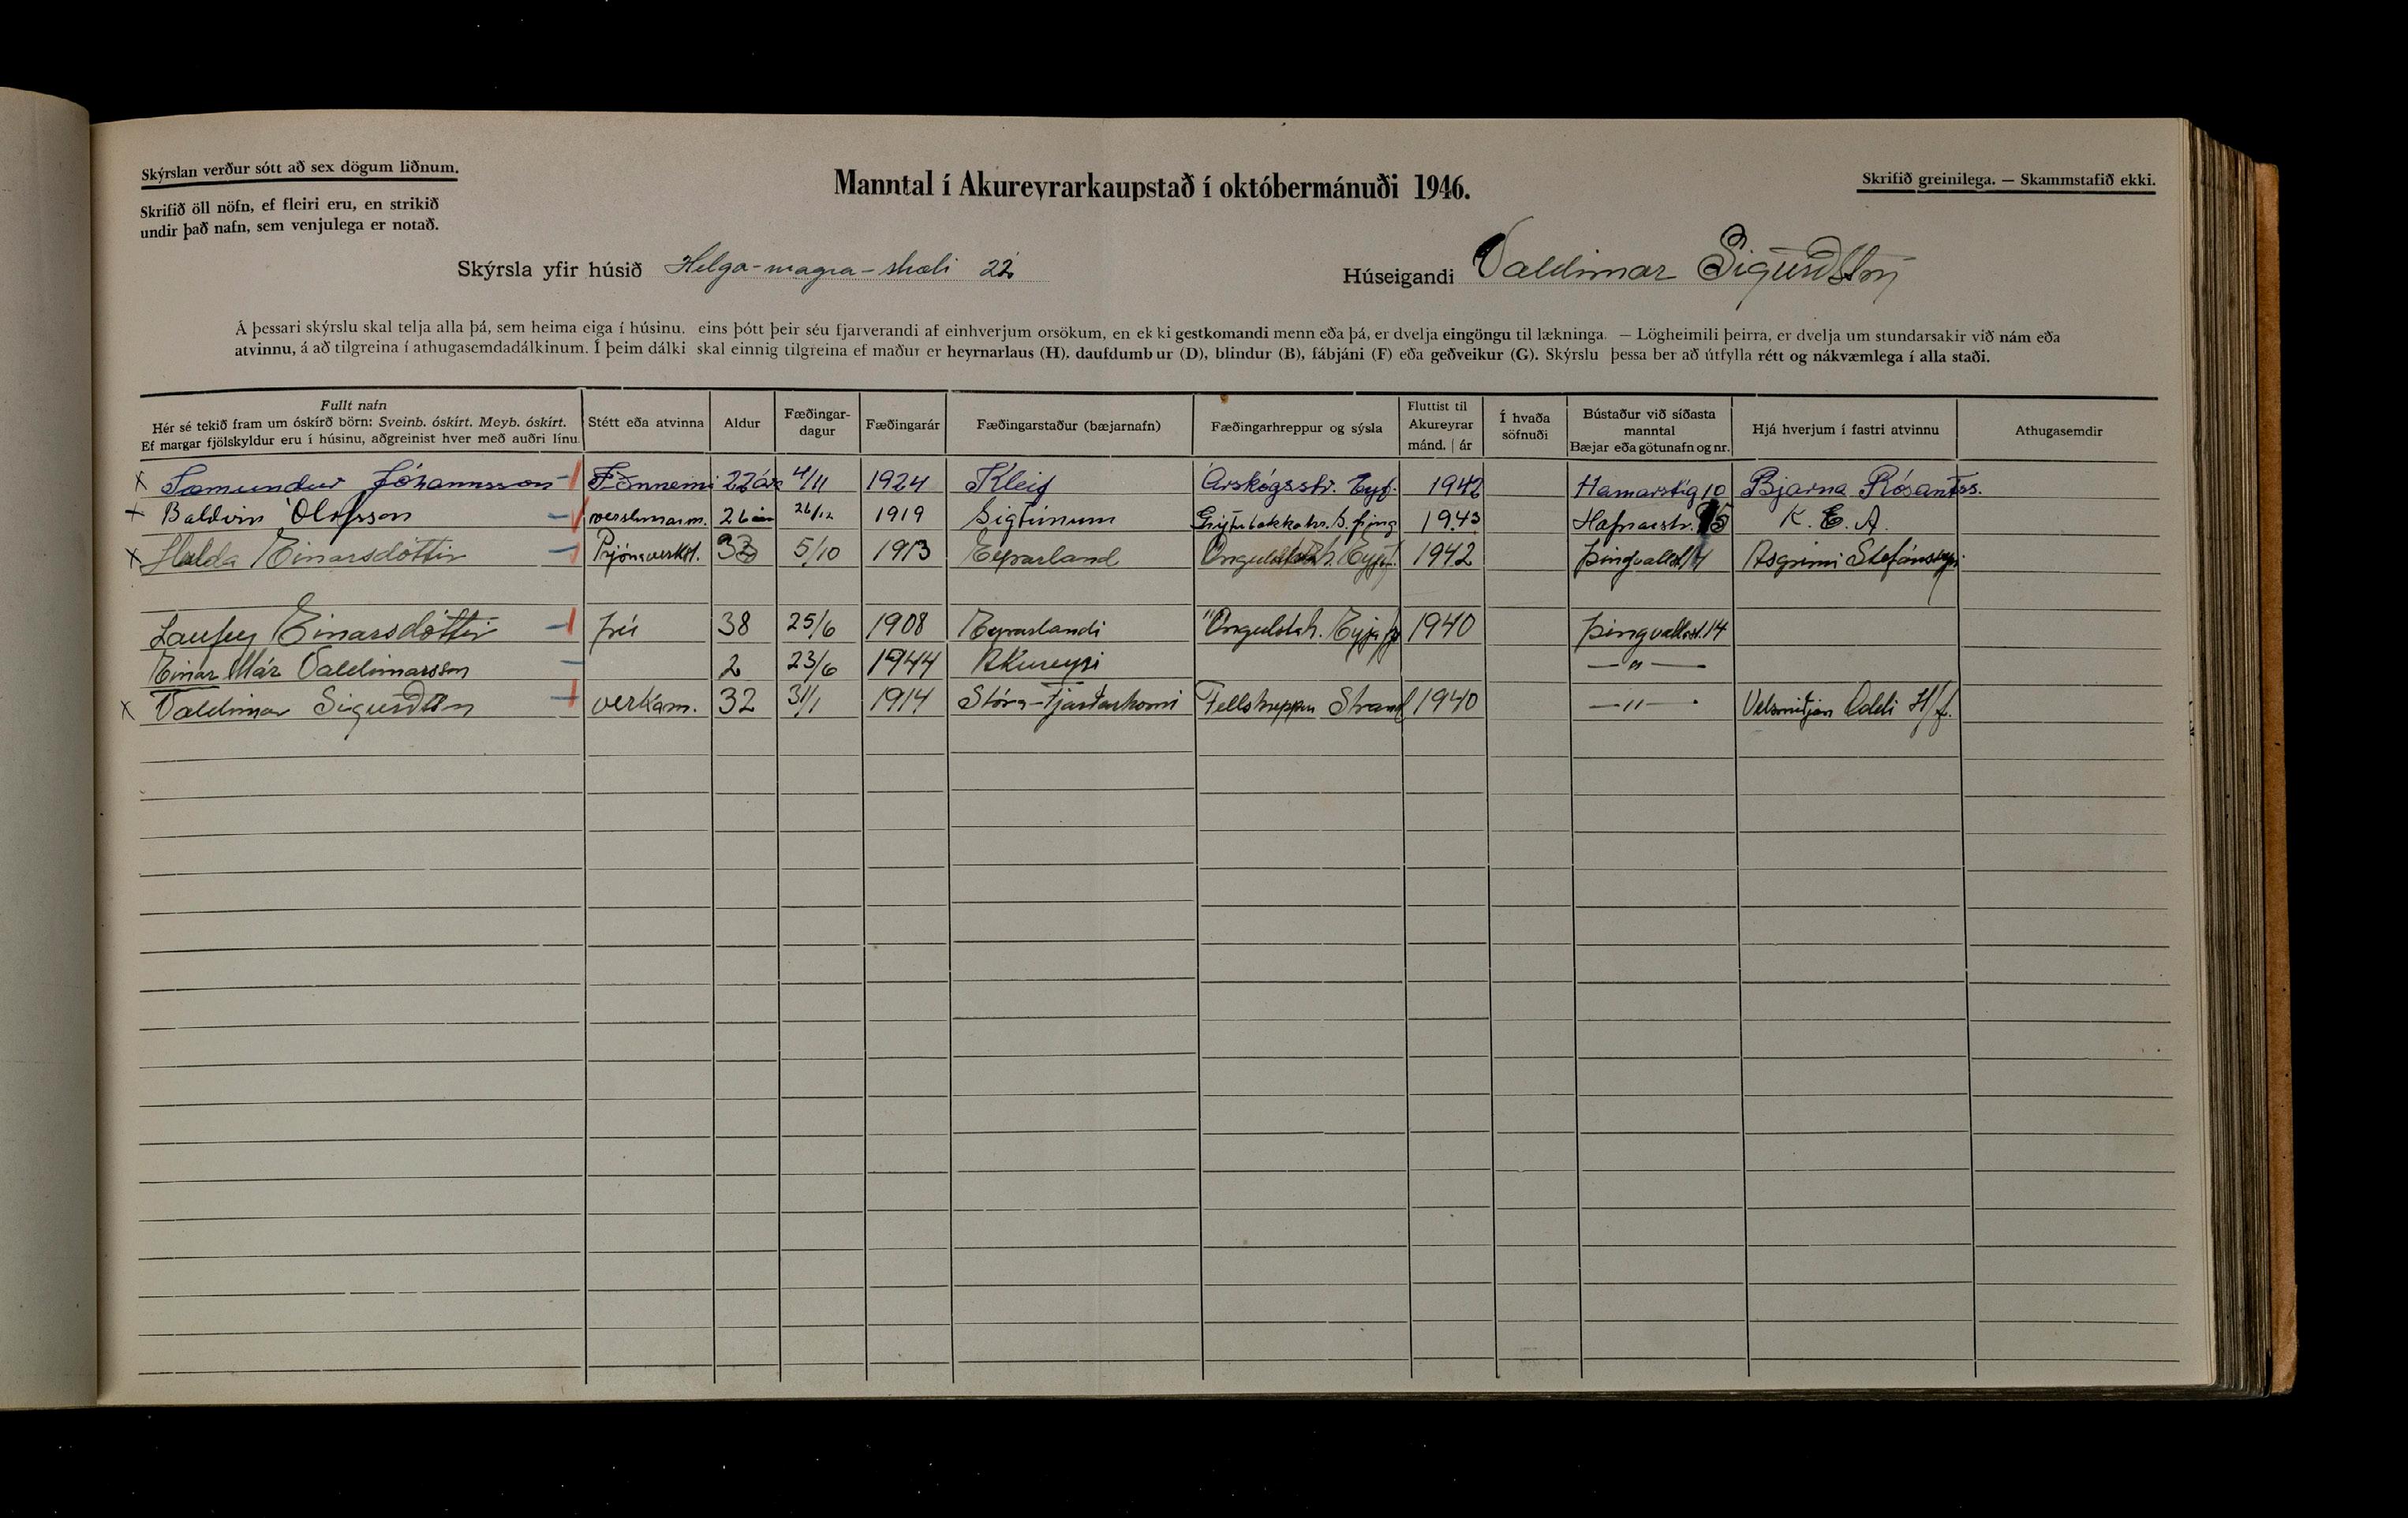 Skýrslan verður sótt að sex dögum liðnum.
Skrifið öll nöfn, ef fleiri eru, en strikið
undir það nafn, sem venjulega er notað.
Manntal í Akureyrarkaupstað í októbermánuði 1946.
Skrifið greinilega. — Skammstafið ekki.
Skýrsla yfir húsið Helga-magra-stræti 22
Húseigandi Valdimar Sigurðsson
Á þessari skýrslu skal telja alla þá, sem heima eiga í húsinu, eins þótt þeir séu fjarverandi af einhverjum orsökum, en ekki gestkomandi menn eða þá, er dvelja eingöngu til lækninga. — Lögheimili þeirra, er dvelja um stundarsakir við nám eða
atvinnu, á að tilgreina í athugasemdadálkinum. Í þeim dálki skal einnig tilgreina ef maður er heyrnarlaus (H), daufdumbur (D), blindur (B), fábjáni (F) eða geðveikur (G). Skýrslu þessa ber að útfylla rétt og nákvæmlega í alla staði.
Fullt nafn
Hér sé tekið fram um óskírð börn: Sveinb. óskírt. Meyb. óskírt.
Ef margar fjölskyldur eru í húsinu, aðgreinist hver með auðri línu.
Stétt eða atvinna
Aldur
Fæðingar-
dagur
Fæðingarár
Fæðingarstaður (bæjarnafn)
Fæðingarhreppur og sýsla
Fluttist til
Akureyrar
mánd. | ár
Í hvaða
söfnuði
Bústaður við síðasta
manntal
Bæjar eða götunafn og nr.
Hjá hverjum í fastri atvinnu
Athugasemdir
x Sæmundur Jóhannsson Iðnnemi 22 ára 4/11 1924 Kleif Árskógsstr. Eyf. 1942 Hamarstíg 10 Bjarna Rósantss.
x Baldvin Ólafsson verslunarm. 26 ára 26/12 1919 Sigtúnum S. þing 1943 Hafnarstr. K. E. A.
x Halda Einarsdóttir Prjónaverkst. 33 5/10 1913 Eyrarland Öngulstaðah. Eyjf. 1942 Þingvallst. 14 Ásgrími Stefánssyni
Laufey Einarsdóttir frú 38 25/6 1908 Eyrarlandi Öngulstah. Eyjafj 1940 Þingvallast. 14
Einar Már Valdimarsson 2 23/6 1944 Akureyri —"—
x Valdimar Sigurðsson verkam. 32 31/1 1914 Stóra-Fjarðarhorni Fellshreppur Strand 1940 —"— Velsmiðjan Oddi H/f.